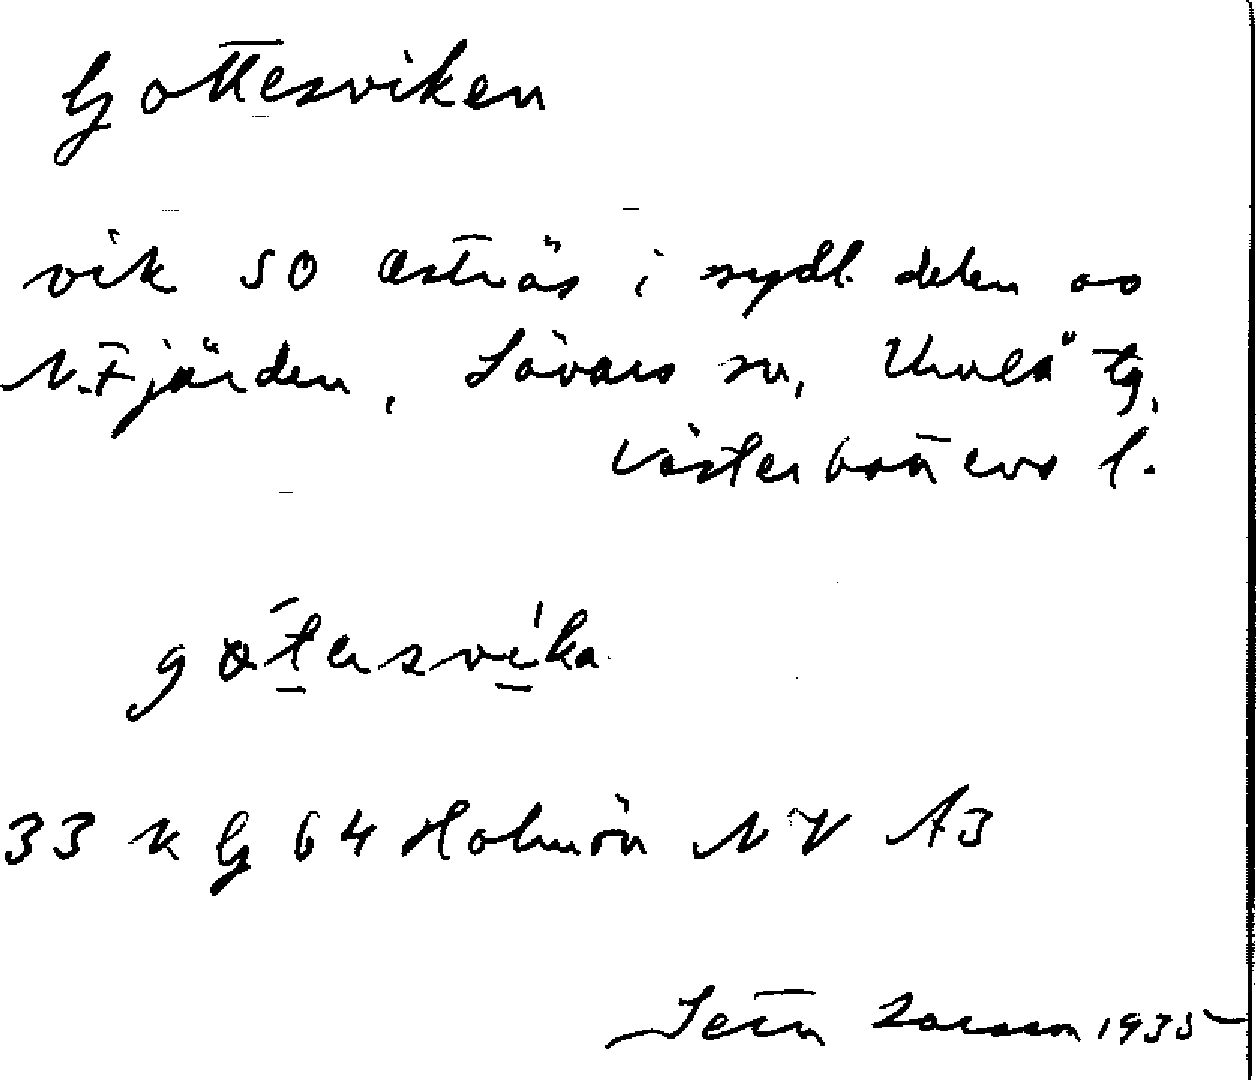 Gottesviken
vik SO Österås i sydl. delen av
N. Fjärden, Sävars sn, Umeå tg,
Västerbottens l.
33 K G 64 Holmön NV A3
Larsson 1935